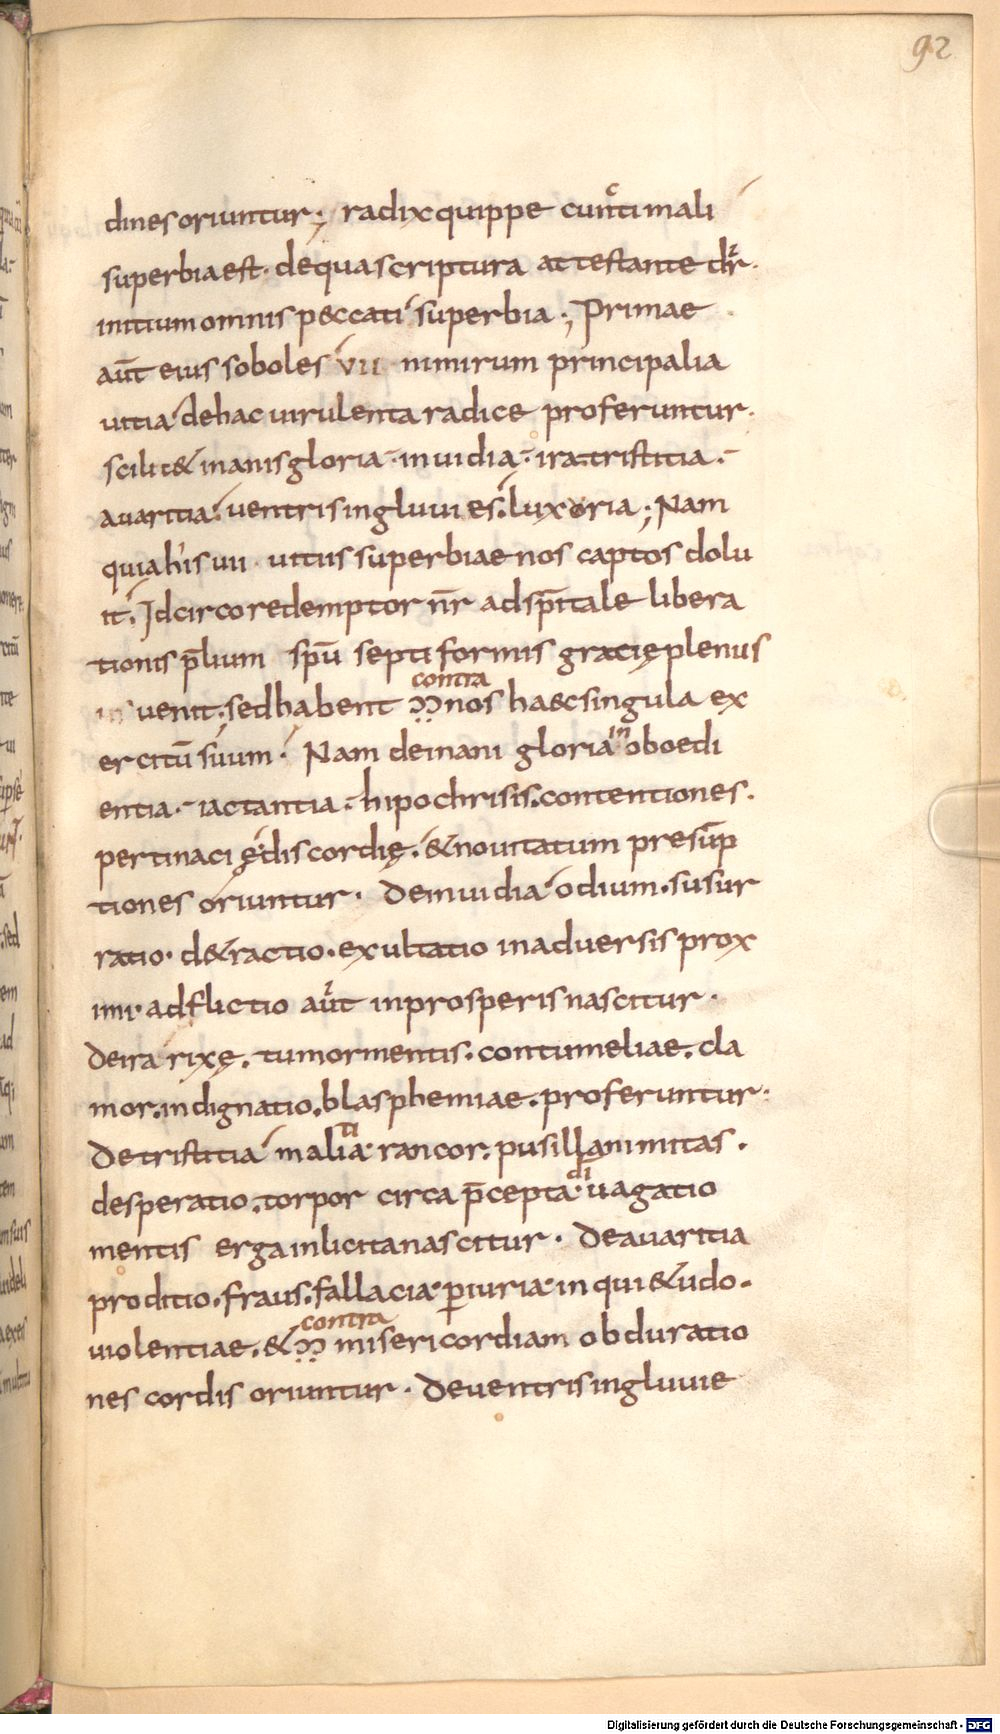 92
dines oriuntur; radix quippe cunͨti mali
superbia est. de qua scriptura attestante dr̄.
initium omnis p&ccati superbia; Primae
aūt eius soboles vii nimirum principalia
uitia de hac uirulenta radice proferuntur.
scilic& inanis gloria. inuidia. ira. tristitia.
auaritia. uentris ingluuies. luxoria; Nam
quia his uii uitiis superbiae nos captos dolu
it. Idcirco redemptor n̄r ad sp̄itale libera
tionis p̄lium sp̄u septiformis gracię plenus
contra
uenit; sed habent ↄↄ nos haec singula ex
ercitū suum. Nam de inani gloria inoboedi
entia. iactantia. hipochrisis. contentiones.
pertinacię. discordię. & nouitatum presūp
tiones oriuntur. De inuidia odium. susur
ratio. d&ractio. exultatio in aduersis prox
imi. adflictio aūt in prosperis nascitur.
De ira rixę. tumor mentis. contumeliae. cla
mor. indignatio. blasphemiae. proferuntur.
De tristitia malitia. rancor. pusillanimitas.
desperatio. torpor circa p̄cepta di uagatio
mentis erga inlicita nascitur. De auaritia
proditio. fraus. fallacia. ꝑiuria. inqui&udo.
contra
uiolentiae. & ↄↄ misericordiam obduratio
nes cordis oriuntur. De uentris ingluuie
Digitalisierung gefördert durch die Deutsche Forschungsgemeinschaft - DFG